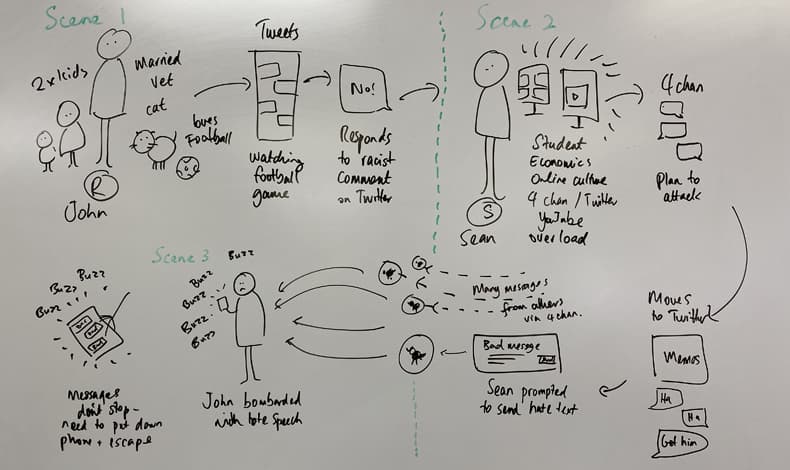 Scene 1
2x kids
Married
Vet
Cat
loves
Football
R
John
Tweets
No!
watching
football
game
Responds
to racist
comment
on Twitter
Scene 2
S
Sean
Student
Economics
Online culture
4 chan / Twitter
YouTube
overload
4 chan
Plan to
attack
Moves
to Twitter
Memes
Ha
Ha
Got him
Bad message
Sean prompted
to send hate text
Many messages
from others
via 4 chan.
Scene 3
Buzz
Buzz
Buzz
Buzz
Buzz
Buzz
John bombarded
with hate speech
Buzz
Buzz
Buzz
Messages
don't stop -
need to put down
phone + escape